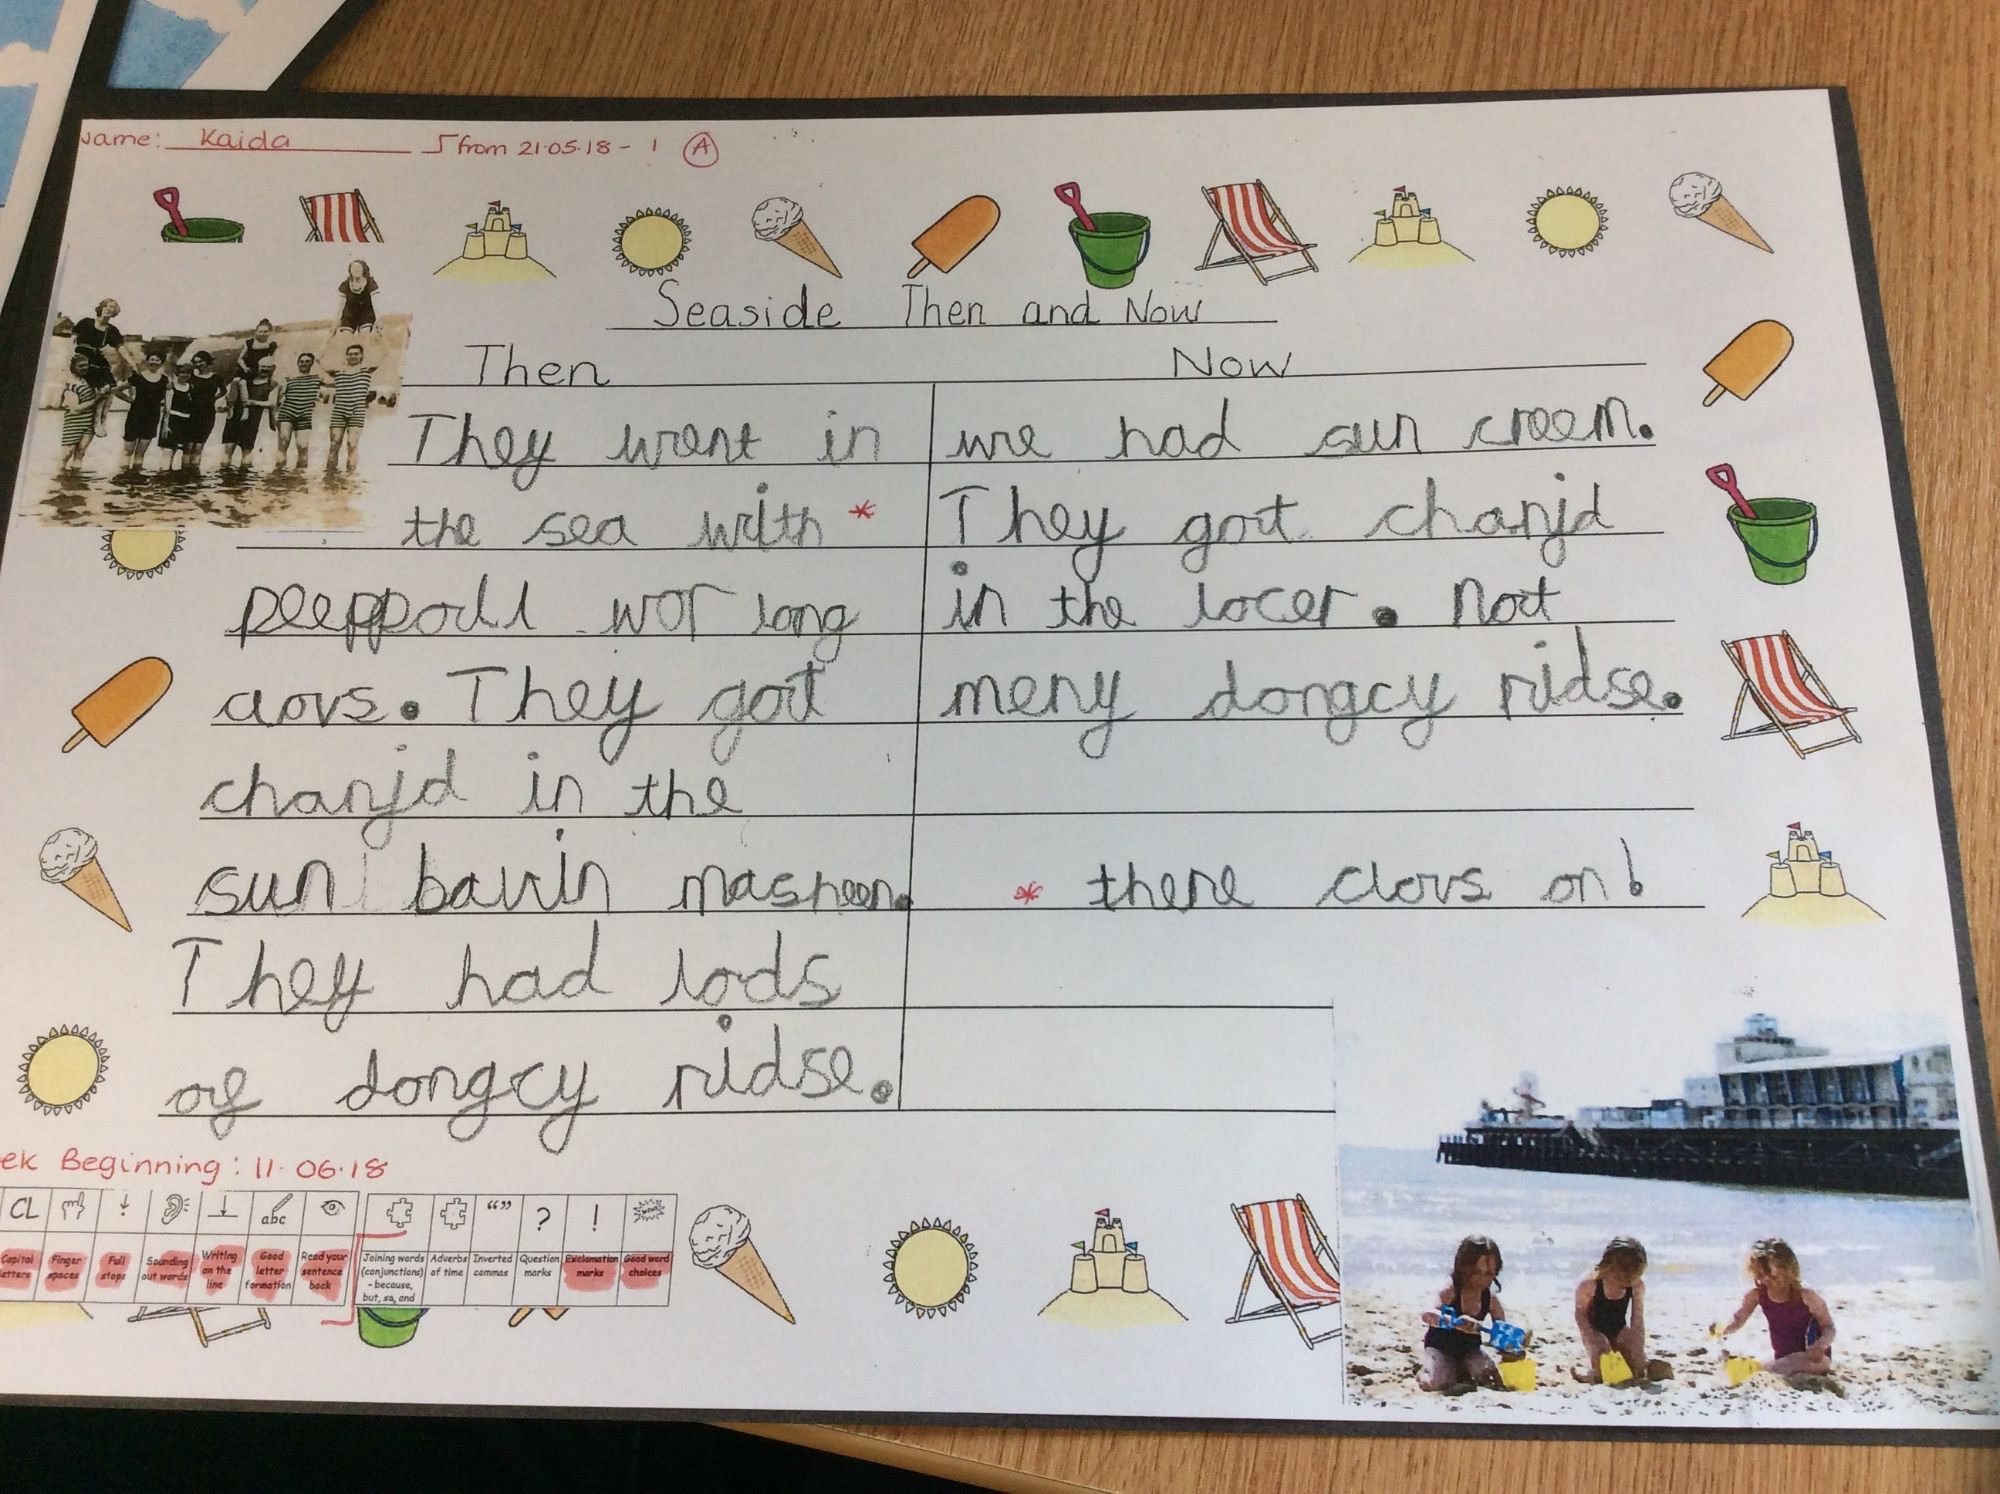 Name: Kaida from 21.05.18 - 1 A
Seaside Then and Now
Then
They went in
the sea with *
peeppodl wor long
clovs. They got
chanjd in the
sun bavin masheen.
They had lods
of dongcy ridse.
Now
we had sun creem.
They got chanjd
in the locer. Not
meny dongcy ridse.
* there clovs on!
ek Beginning: 11.06.18
CL
abc
“ ”
?
!
Capital letters
Finger spaces
Full stops
Sounding out words
Writing on the line
Good letter formation
Read your sentence back
Joining words (conjunctions) - because, but, so, and
Adverbs of time
Inverted commas
Question marks
Exclamation marks
Good word choices